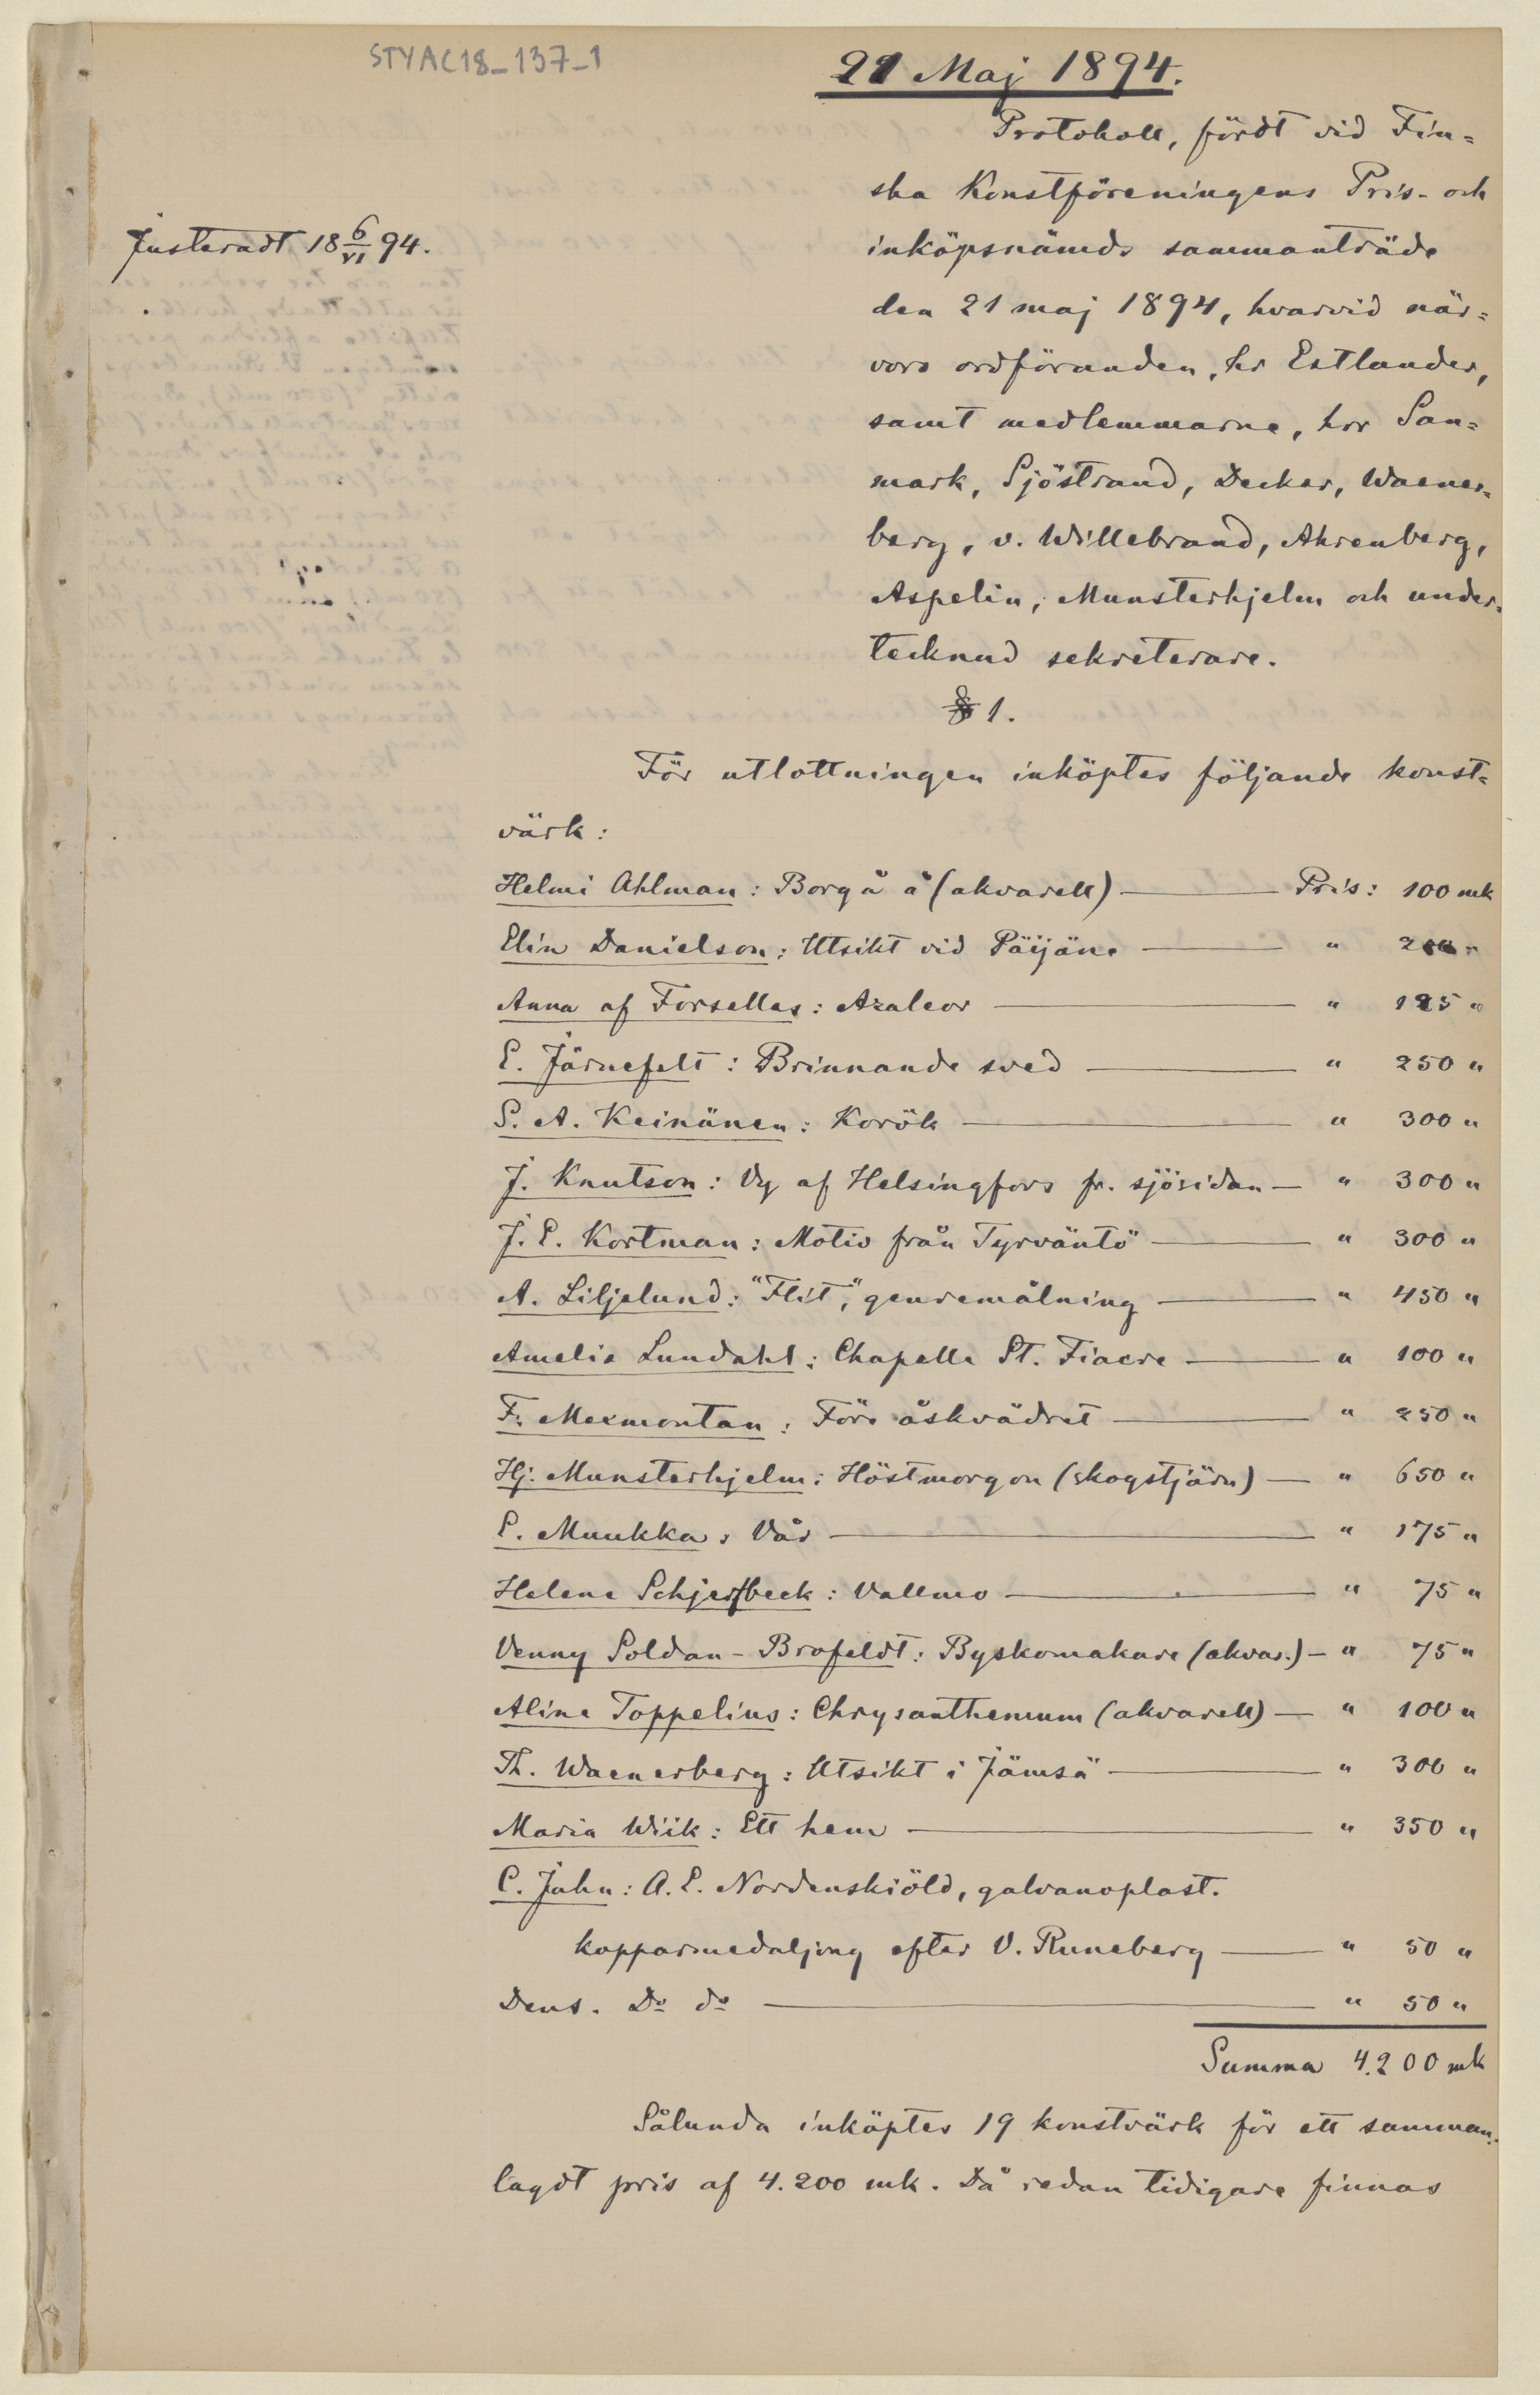 STYAC18_137_1
21 Maj 1894.
Protokoll, fördt vid Fin=
ska Konstföreningens Pris- och
inköpsnämds sammanträde
den 21 maj 1894, hvarvid när=
voro ordföranden, hr Estlander,
samt medlemmarne, hrr San=
mark, Sjöstrand, Decker, Waener=
berg, v. Willebrand, Ahrenberg,
Aspelin, Munsterhjelm och under=
tecknad sekreterare.
Justeradt 18 6/VI 94.
§ 1.
För utlottningen inköptes följande konst=
värk:
Helmi Ahlman: Borgå å (akvarell) — Pris: 100 mk
Elin Danielson: Utsikt vid Päijäne — " 200 "
Anna af Forselles: Azaleor — " 125 "
E. Järnefelt: Brinnande sved — " 250 "
S. A. Keinänen: Korök — " 300 "
J. Knutson: Vy af Helsingfors fr. sjösidan — " 300 "
J. E. Kortman: Motiv från Tyrväntö — " 300 "
A. Liljelund: "Flit", genremålning — " 450 "
Amelie Lundahl: Chapelle St. Fiacre — " 100 "
F. Mexmontan: Före åskvädret — " 250 "
Hj. Munsterhjelm: Höstmorgon (skogstjärn) — " 650 "
E. Muukka: Vår — " 175 "
Helene Schjerfbeck: Vallmo — " 75 "
Venny Soldan-Brofeldt: Byskomakare (akvar.) — " 75 "
Alina Toppelius: Chrysanthemum (akvarell) — " 100 "
Th. Waenerberg: Utsikt i Jämsä — " 300 "
Maria Wiik: Ett hem — " 350 "
C. Jahn: A. E. Nordenskiöld, galvanoplast.
kopparmedaljong efter V. Runeberg — " 50 "
Dens. Do do — " 50 "
Summa 4.200 mk
Sålunda inköptes 19 konstvärk för ett samman=
lagdt pris af 4.200 mk. Då redan tidigare finnas